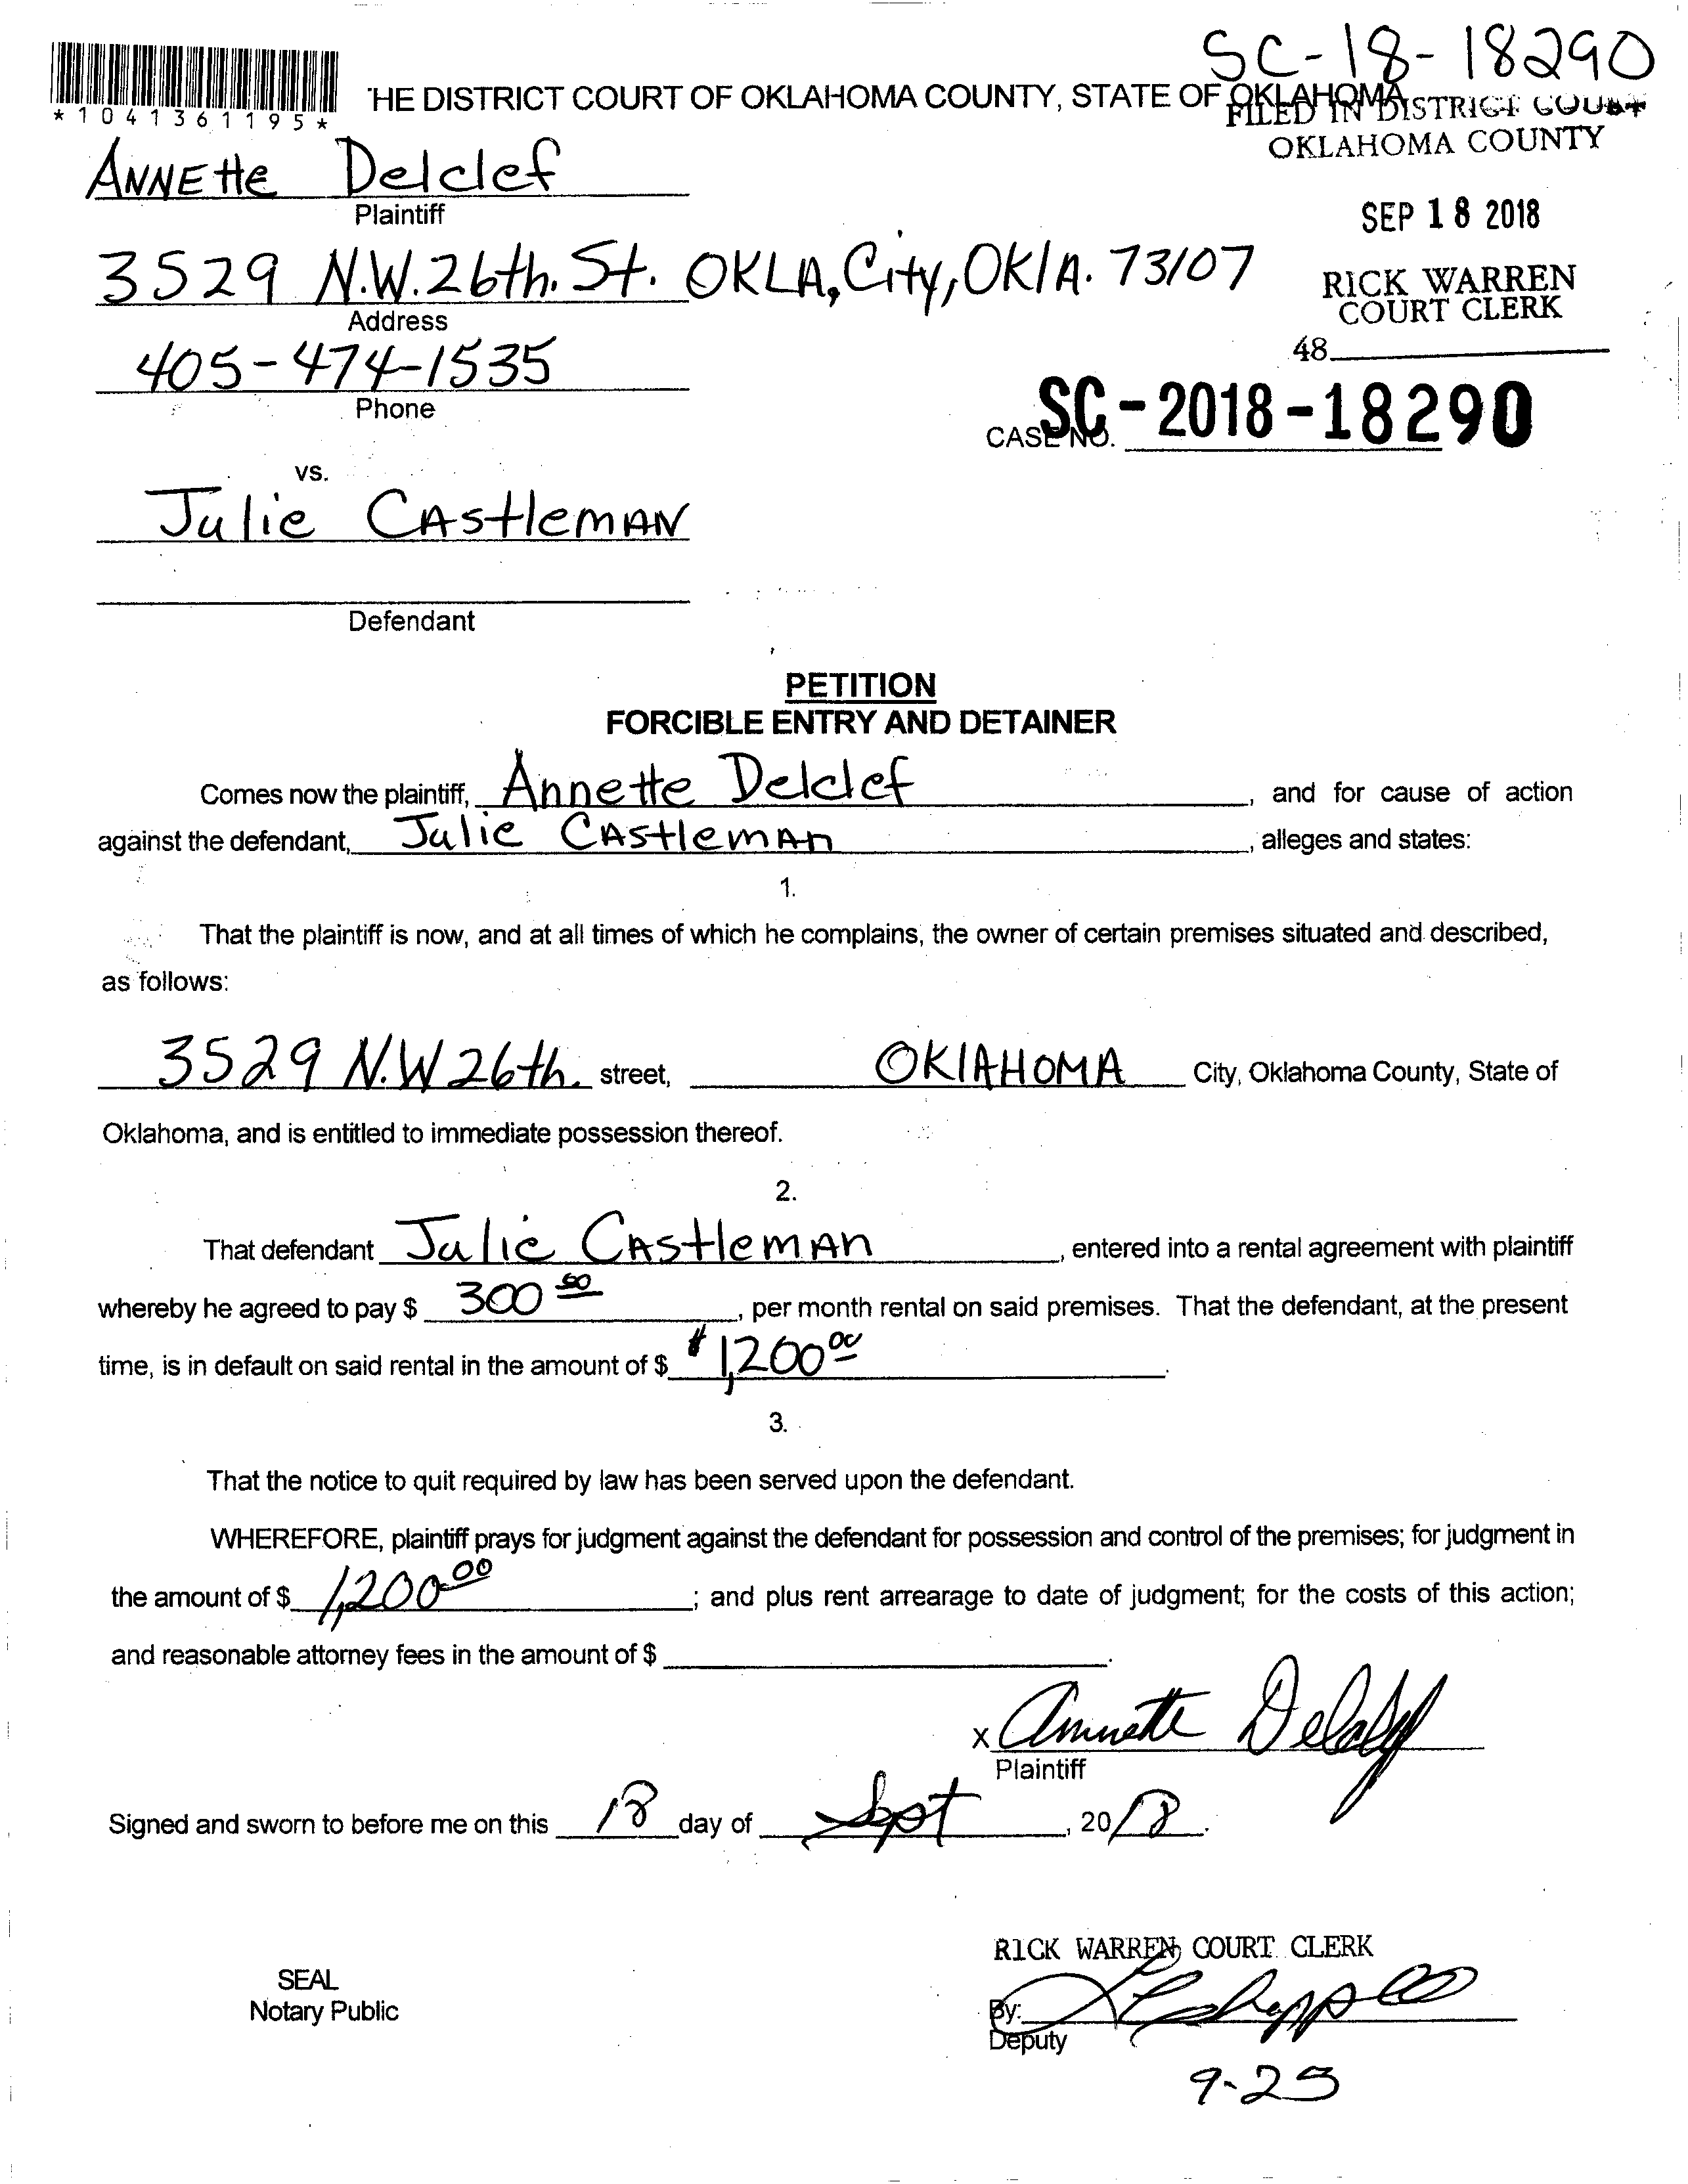 SC-18-18290
*1041361195*
THE DISTRICT COURT OF OKLAHOMA COUNTY, STATE OF OKLAHOMA
FILED IN DISTRICT COURT
OKLAHOMA COUNTY
ANNEtte Delclef
Plaintiff
SEP 18 2018
3529 N.W. 26th. St. OKLA, City, OKlA. 73107
Address
RICK WARREN
COURT CLERK
405-474-1535
Phone
48
CASE NO. SC-2018-18290
vs.
Julie CAstlemAN
Defendant
PETITION
FORCIBLE ENTRY AND DETAINER
Comes now the plaintiff, Annette Delclef, and for cause of action
against the defendant, Julie CAstlemAn, alleges and states:
1.
That the plaintiff is now, and at all times of which he complains, the owner of certain premises situated and described,
as follows:
3529 N.W 26th. street, OKlAHOMA City, Oklahoma County, State of
Oklahoma, and is entitled to immediate possession thereof.
2.
That defendant Julie CAstlemAn, entered into a rental agreement with plaintiff
whereby he agreed to pay $ 300 00, per month rental on said premises. That the defendant, at the present
time, is in default on said rental in the amount of $ $1,200 00.
3.
That the notice to quit required by law has been served upon the defendant.
WHEREFORE, plaintiff prays for judgment against the defendant for possession and control of the premises; for judgment in
the amount of $ 1,200.00; and plus rent arrearage to date of judgment; for the costs of this action;
and reasonable attorney fees in the amount of $ .
x Annette Delclef
Plaintiff
Signed and sworn to before me on this 18 day of Sept, 2018.
RICK WARREN, COURT CLERK
SEAL
Notary Public
By:
Deputy
9-25